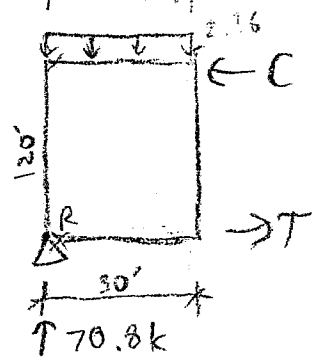 2.36
C
120'
R
T
30'
70.8k